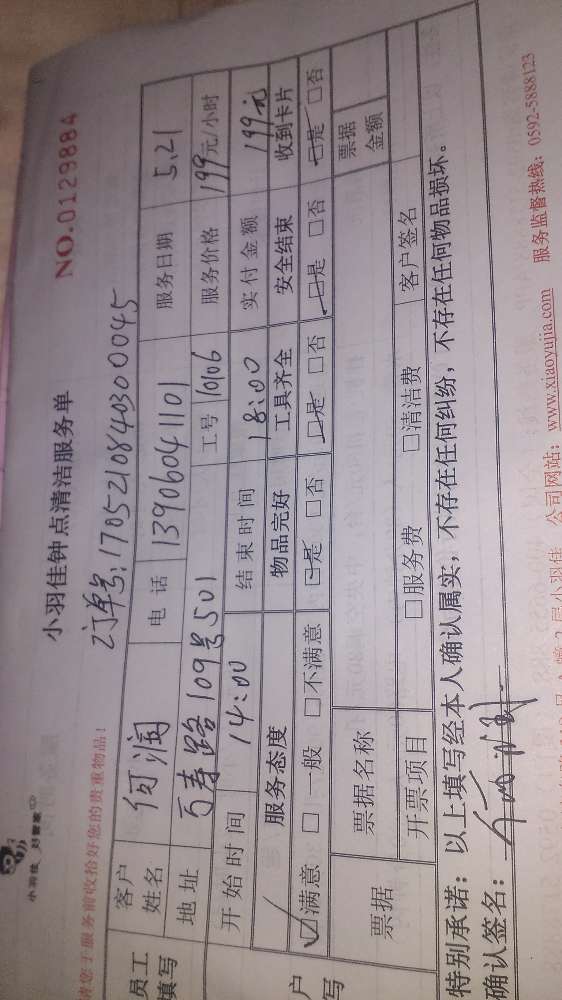 小羽佳 好管家
小羽佳钟点清洁服务单
NO.0129884
订单号:170521084030045
请您于服务前收拾好您的贵重物品!
员工
填写
客户
姓名
何润
电话
13906041101
服务日期
5.21
地址
万寿路109号501
工号
10106
服务价格
199元/小时
开始时间
14:00
结束时间
18:00
实付金额
199元
服务态度
物品完好
工具齐全
安全结束
收到卡片
☑满意 □一般 □不满意
☑是 □否
☑是 □否
☑是 □否
☑是 □否
票据
票据名称
票据
金额
开票项目
□服务费
□清洁费
客户签名
特别承诺:以上填写经本人确认属实,不存在任何纠纷,不存在任何物品损坏。
确认签名:
公司网站:www.xiaoyujia.com
服务监督热线:0592-5888123